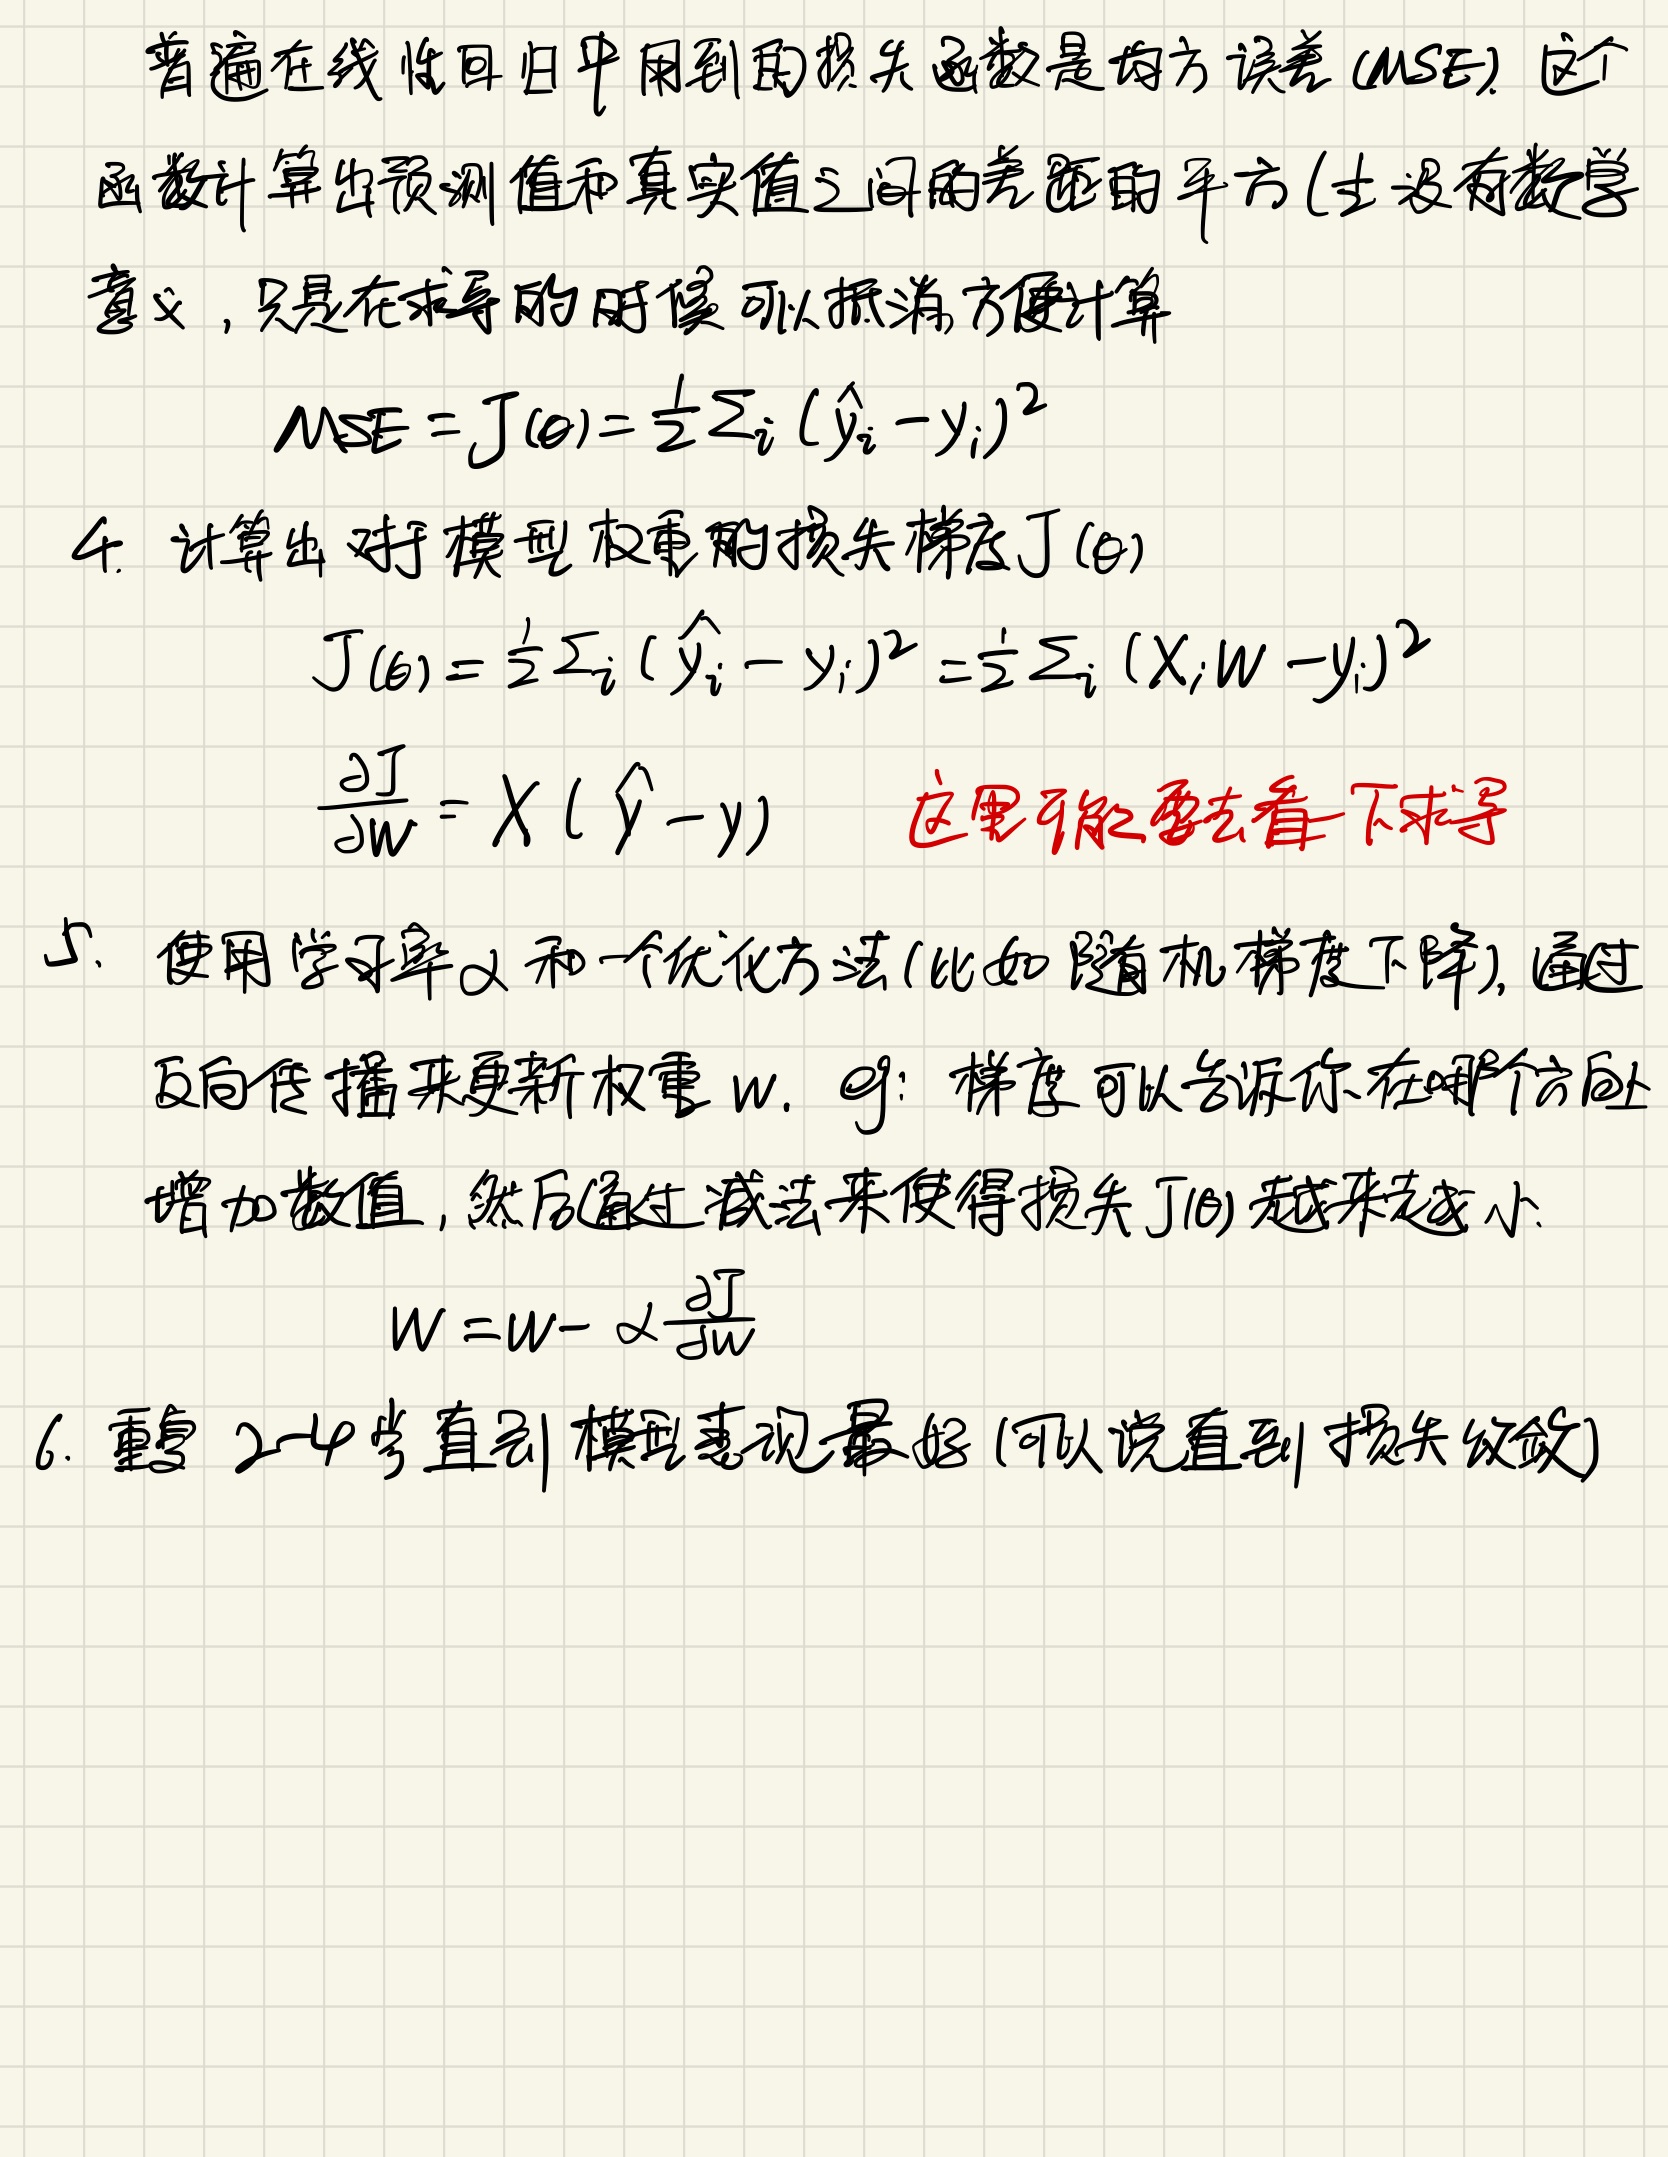 普遍在线性回归中用到的损失函数是均方误差(MSE). 这个
函数计算出预测值和真实值之间的差距的平方(½没有数学
意义,只是在求导的时候可以抵消方便计算
MSE = J(θ) = ½ Σᵢ (ŷᵢ - yᵢ)²
4. 计算出对于模型权重的损失梯度J(θ)
J(θ) = ½ Σᵢ (ŷᵢ - yᵢ)² = ½ Σᵢ (XᵢW - yᵢ)²
∂J/∂W = X(ŷ - y) 这里可能要去看一下求导
5. 使用学习率α和一个优化方法(比如随机梯度下降), 通过
反向传播来更新权重w. eg: 梯度可以告诉你在哪个方向上
增加数值, 然后通过减法来使得损失J(θ)越来越小.
W = W - α ∂J/∂W
6. 重复 2-4步直到模型表现最好(可以说直到损失收敛)